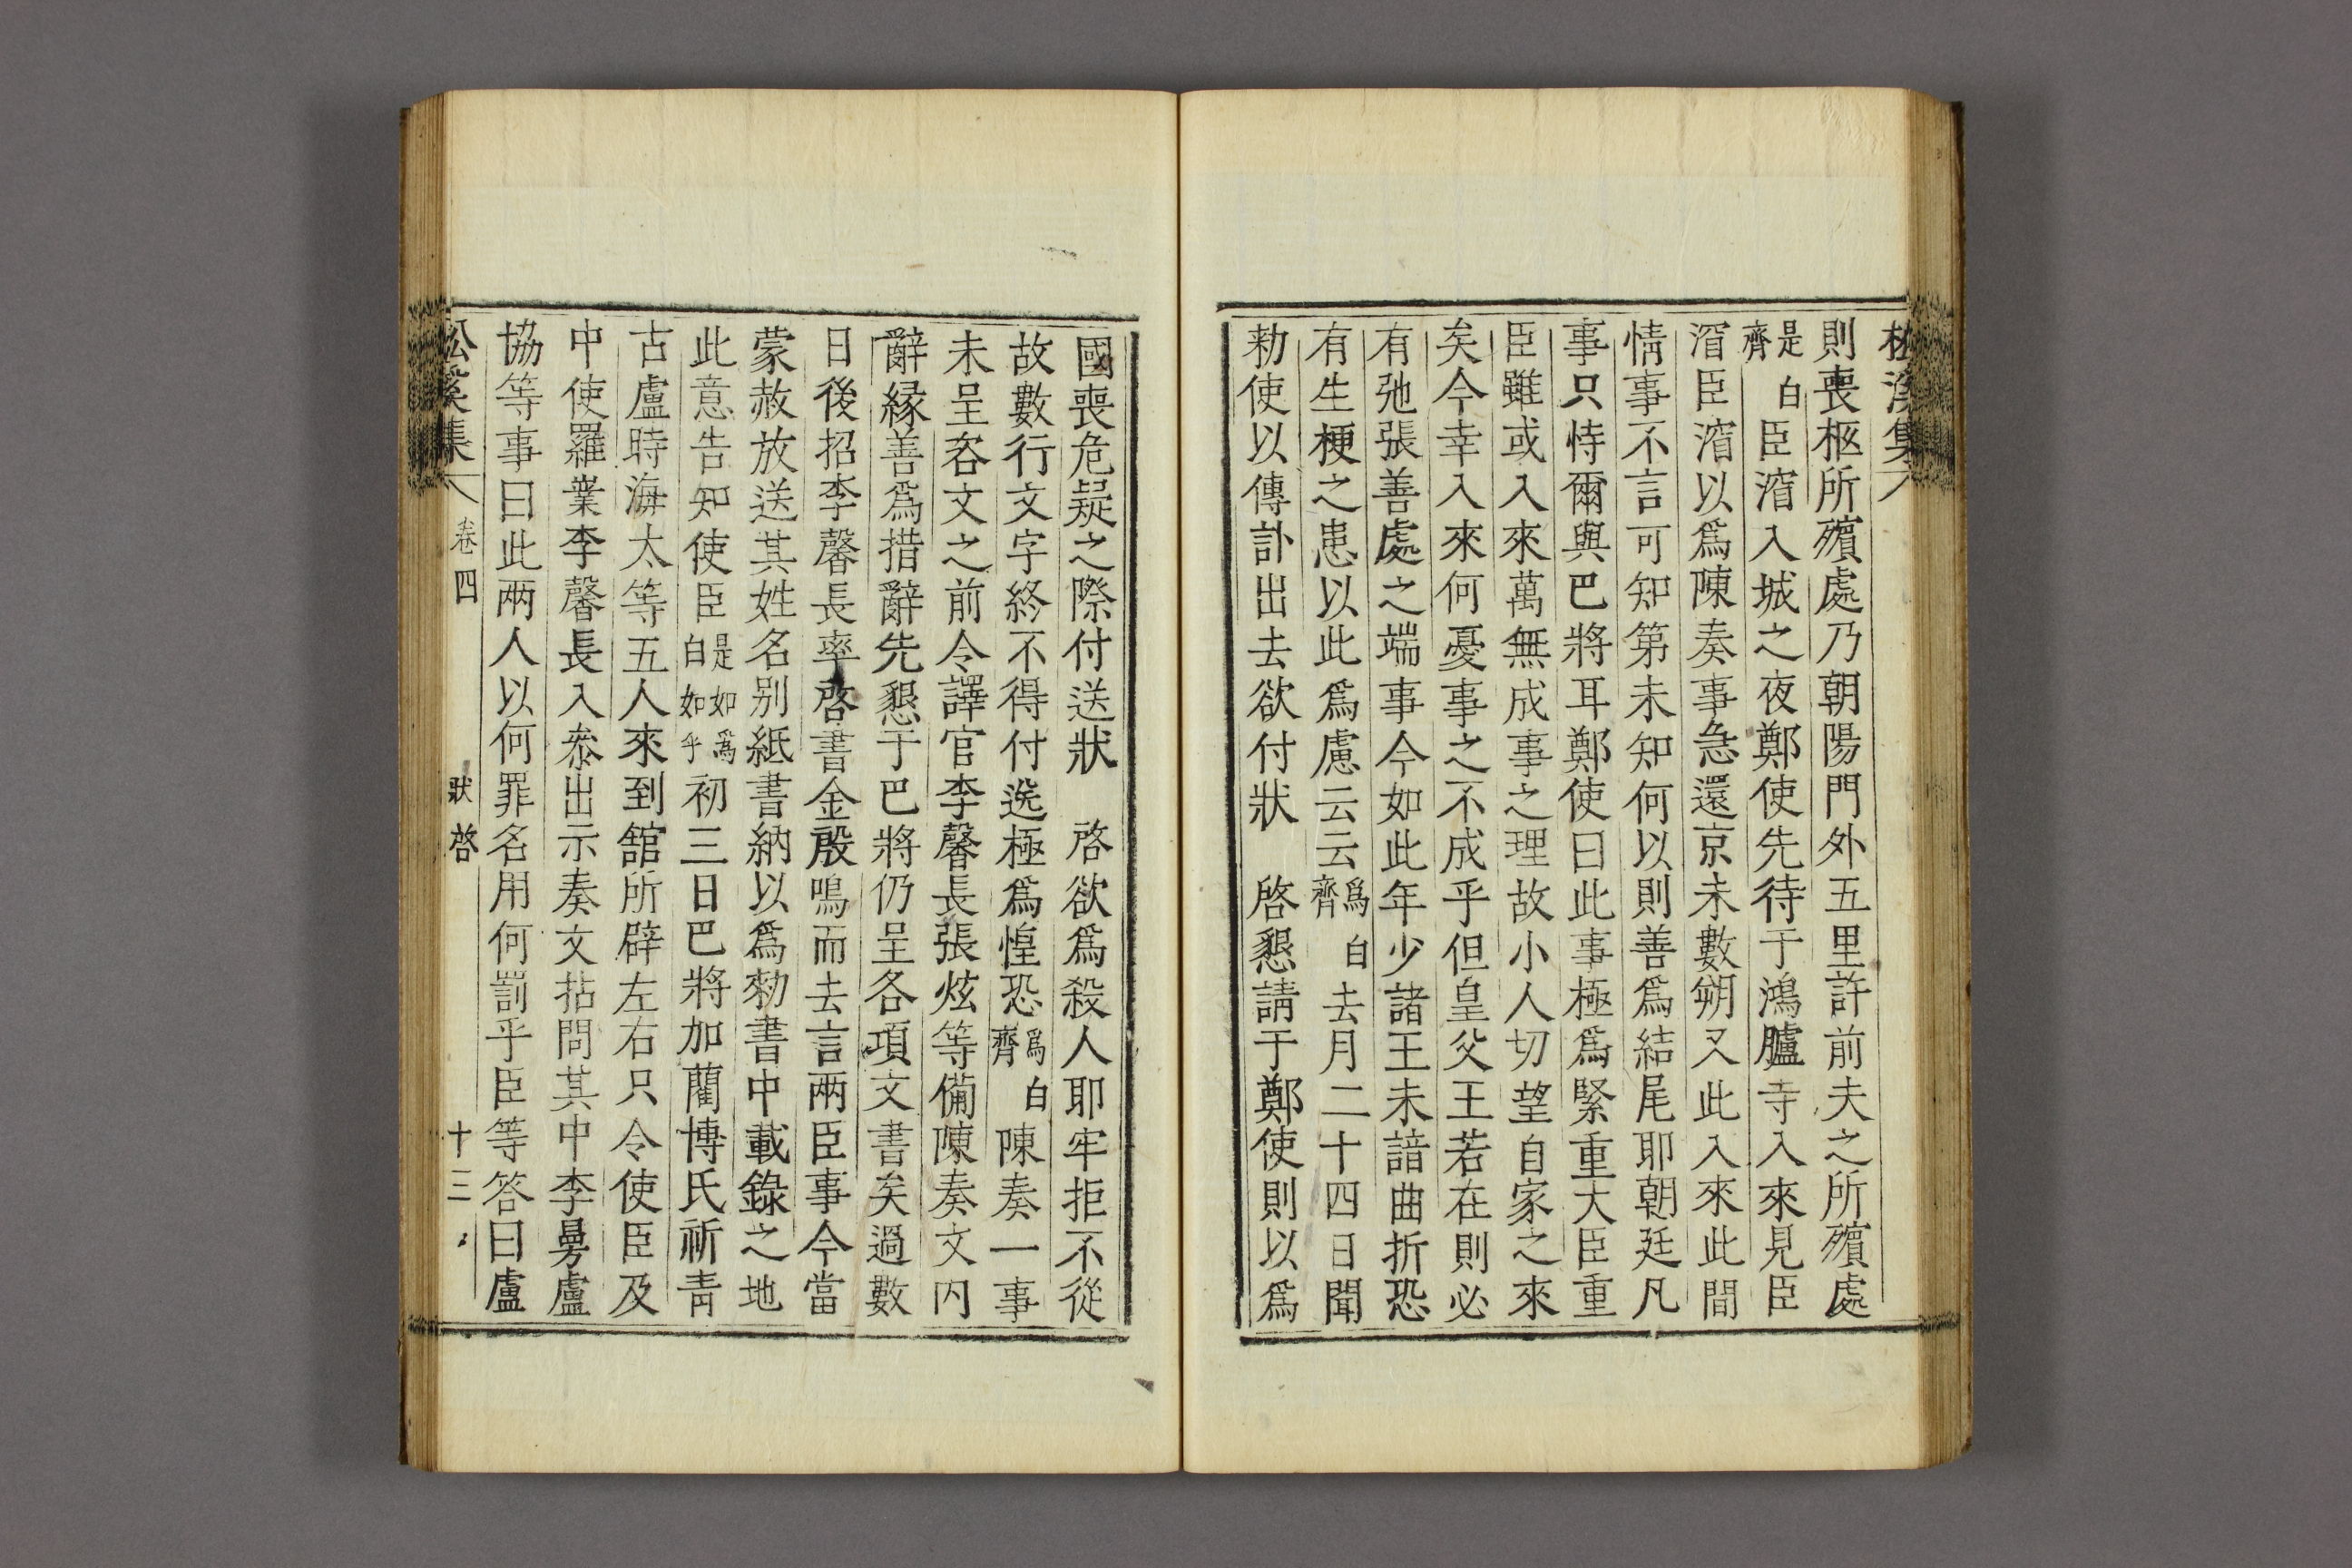 松溪集
則喪柩所殯處乃朝陽門外五里許前夫之所殯處
是齊 白臣濳入城之夜鄭使先待于鴻臚寺入來見臣
濳臣濳以爲陳奏事急還京未數朔又此入來此間
情事不言可知第未知何以則善爲結尾耶朝廷凡
事只恃爾與巴將耳鄭使曰此事極爲緊重大臣重
臣雖或入來萬無成事之理故小人切望自家之來
矣今幸入來何憂事之不成乎但皇父王若在則必
有弛張善處之端事今如此年少諸王未諳曲折恐
有生梗之患以此爲慮云云爲齊 白去月二十四日聞
勑使以傳訃出去欲付狀 啓懇請于鄭使則以爲
國喪危疑之際付送狀 啓欲爲殺人耶牢拒不從
故數行文字終不得付送極爲惶恐爲齊 白陳奏一事
未呈咨文之前令譯官李馨長張炫等備陳奏文內
辭緣善爲措辭先懇于巴將仍呈各項文書矣過數
日後招李馨長率啓書金殷鳴而去言兩臣事今當
蒙赦放送其姓名別紙書納以爲勑書中載錄之地
此意告知使臣是如爲白如乎初三日巴將加藺博氏祈靑
古盧時海太等五人來到舘所辟左右只令使臣及
中使羅嶪李馨長入叅出示奏文拈問其中李昮盧
協等事曰此兩人以何罪名用何罰乎臣等答曰盧
松溪集 卷四 狀啓 十三